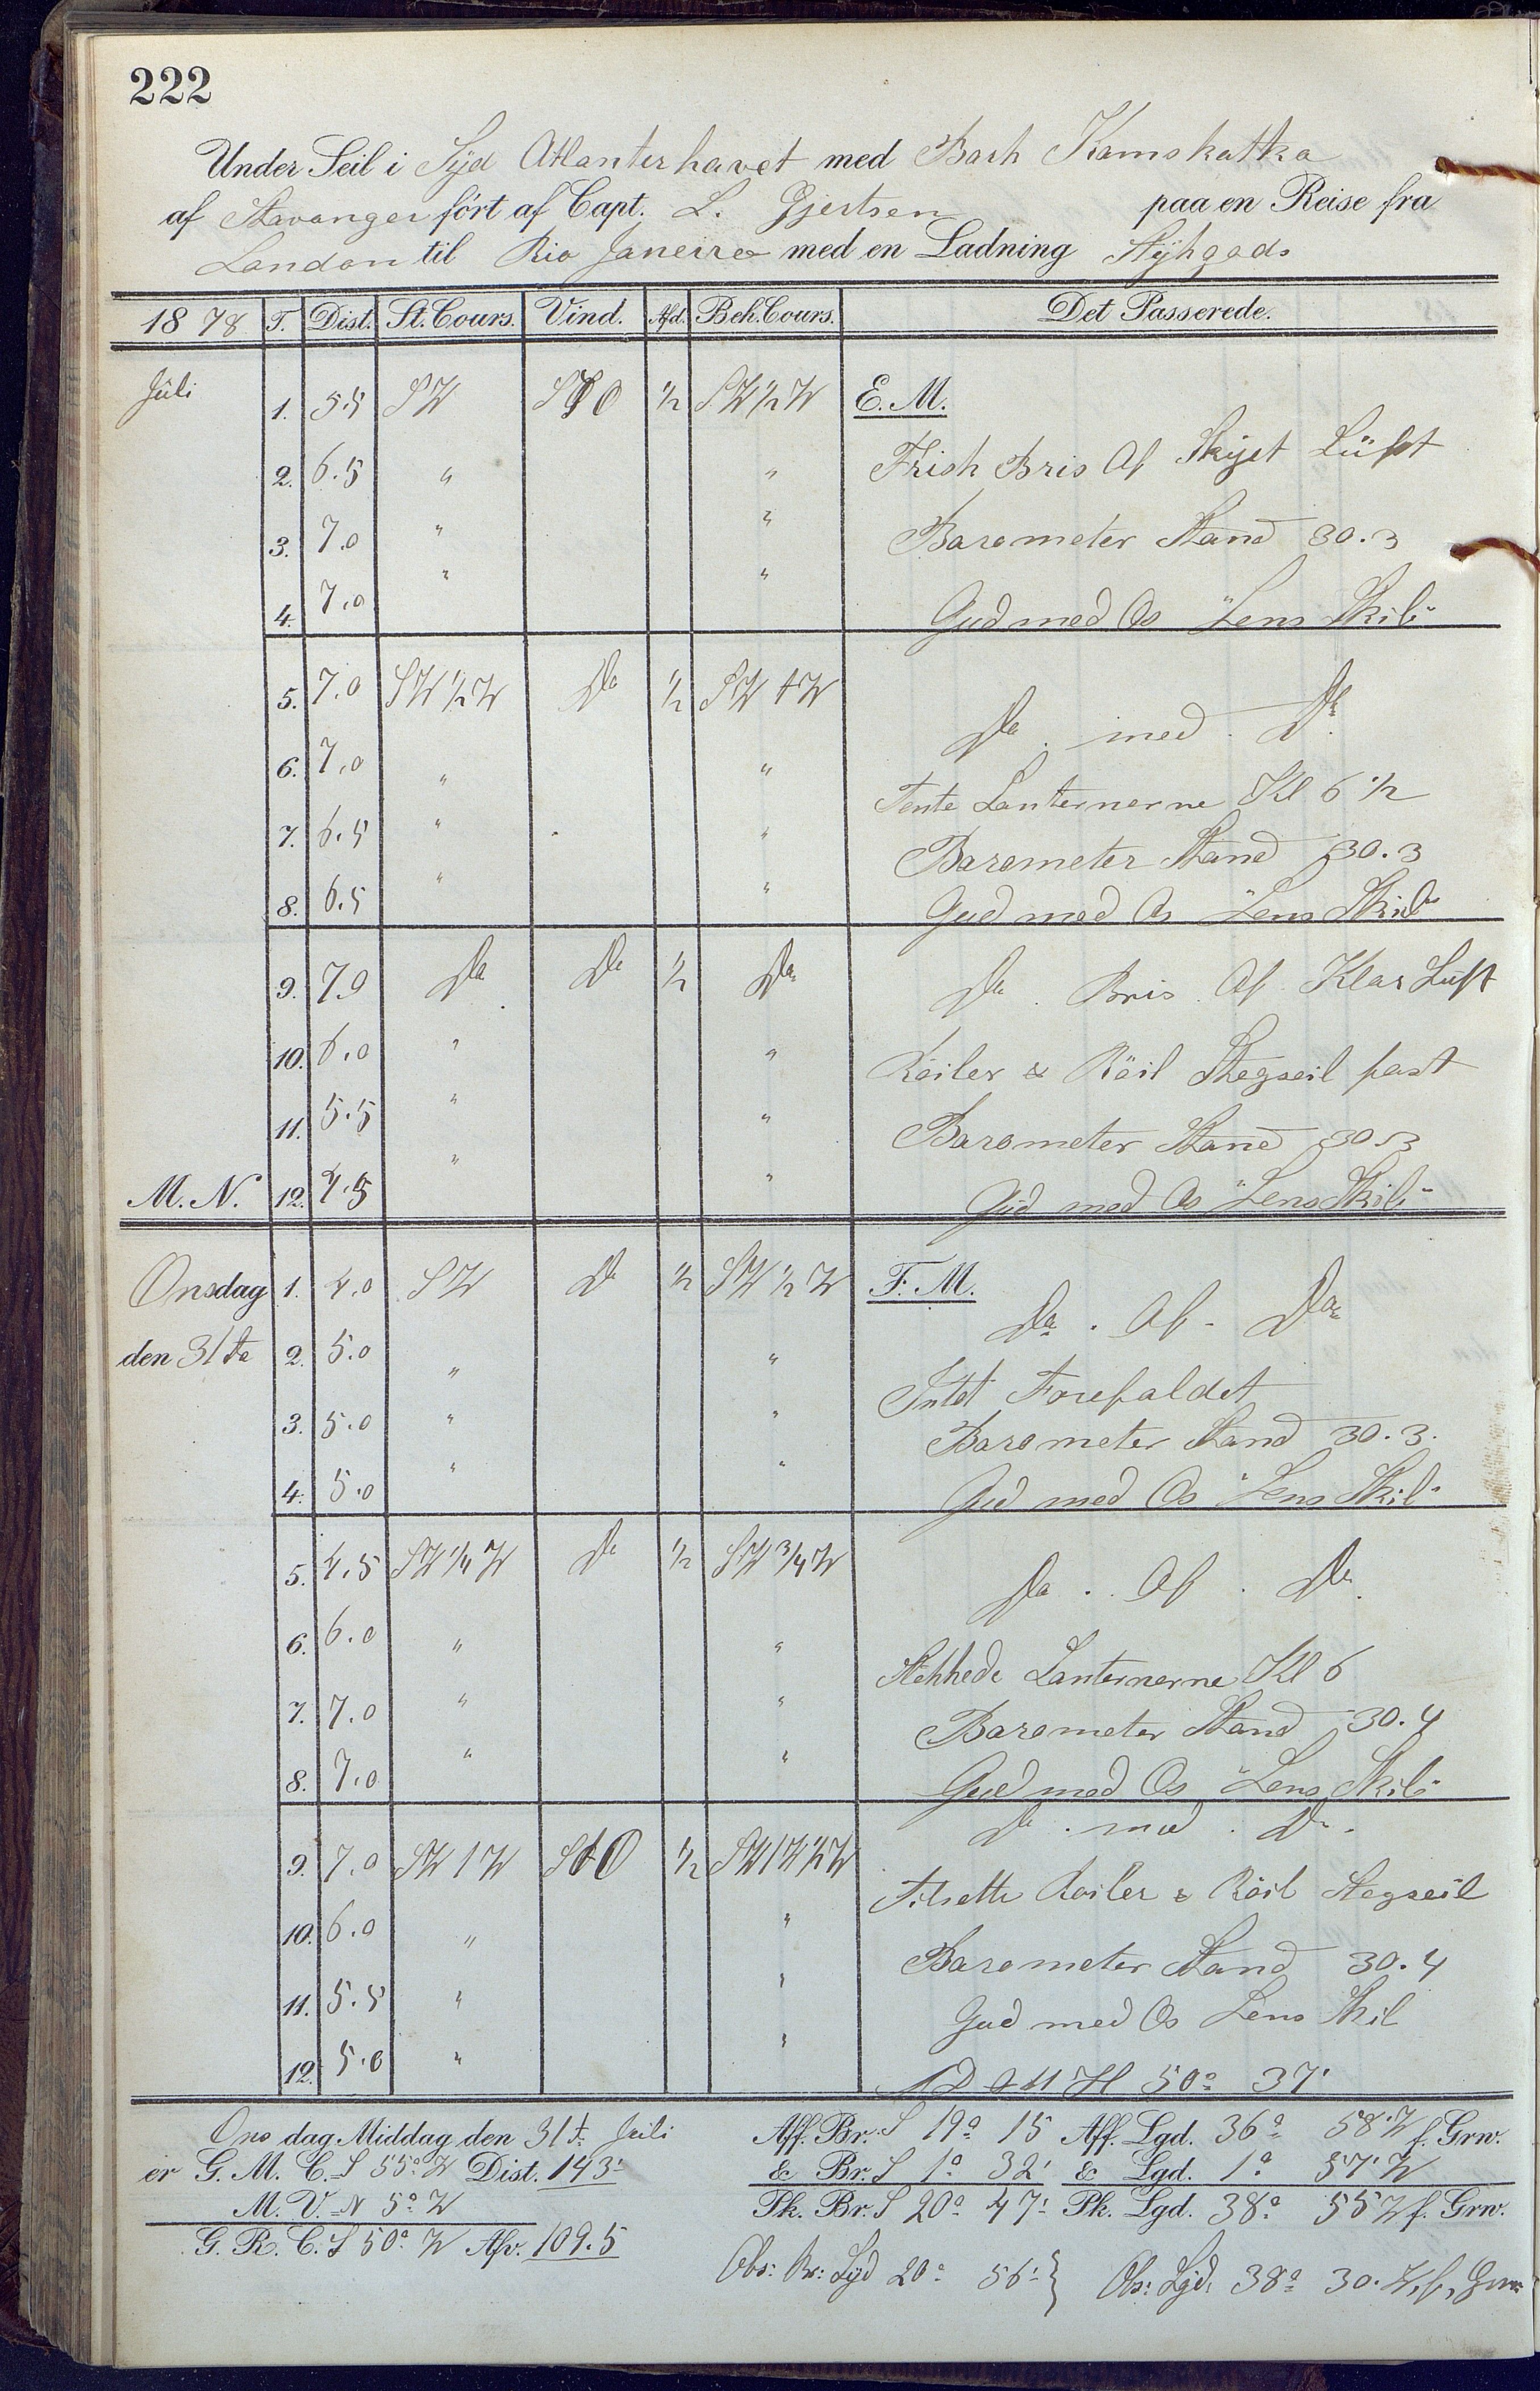 222
Under Seil i Syd Atlanterhavet med Bark Kamskatka
af Stavanger ført af Capt. L. Gjertsen paa en Reise fra
London til Rio Janeiro med en Ladning Stykgods
1878 T. Dist. St. Cours. Vind. Afd. Beh. Cours. Det Passerede.
Juli 1. 5.5 SW O ½ SW½W E. M.
2. 6.5 " " Frisk Bris Af Skyet Lüft
3. 7.0 " " Barometer Stand 30.3
4. 7.0 " " Gud med Os "Lens Skib"
5. 7.0 SW½W Do ½ SW 1W Do . med . Do
6. 7.0 " " Tente Lanternerne Kl 6 ½
7. 6.5 " " Barometer Stand 30.3
8. 6.5 " " Gud med Os "Lens Skib"
9. 7.0 Do Do ½ Do Do . Bris . Af Klar Luft
10. 6.0 " " Röiler & Röil Stegseil fast
11. 5.5 " " Barometer Stand 30.3
M. N. 12. 4.5 " " Gud med Os "Lens Skib"
Onsdag 1. 4.0 SW Do ½ SW½W F. M.
Do . Af . Do
den 31te 2. 5.0 " " Intet Forefaldet
3. 5.0 " " Barometer Stand 30.3.
4. 5.0 " " Gud med Os "Lens Skib"
5. 4.5 SW¼W Do ½ SW¾W Do . Af . Do
6. 6.0 " " Slukkede Lanternerne Kl 6
7. 7.0 " " Barometer Stand 30.4
8. 7.0 " " Gud med Os "Lens Skib"
Do . med . Do
9. 7.0 SW1W StO ½ SW1W½W Tilsatte Roiler & Röil Stegseil
10. 6.0 " " Barometer Stand 30.4
11. 5.5 " " Gud med Os Lens Skib
12. 5.0 " " H 50° 37'
Onsdag Middag den 31t Juli Aff. Br. S 19° 15 Aff. Lgd. 36° 58' W f. Grw.
er G. M. C. S 55° W Dist. 143' & Br. S 1° 32' & Lgd. 1° 57' W
M. V. N 5° W Pk. Br. S 20° 47' Pk. Lgd. 38° 55 W f. Grw.
G. R. C. S 50° W Afv. 109.5
Obs: Br: Syd 20° 56' } Obs: Lgd: 38° 30. W. f. Grw